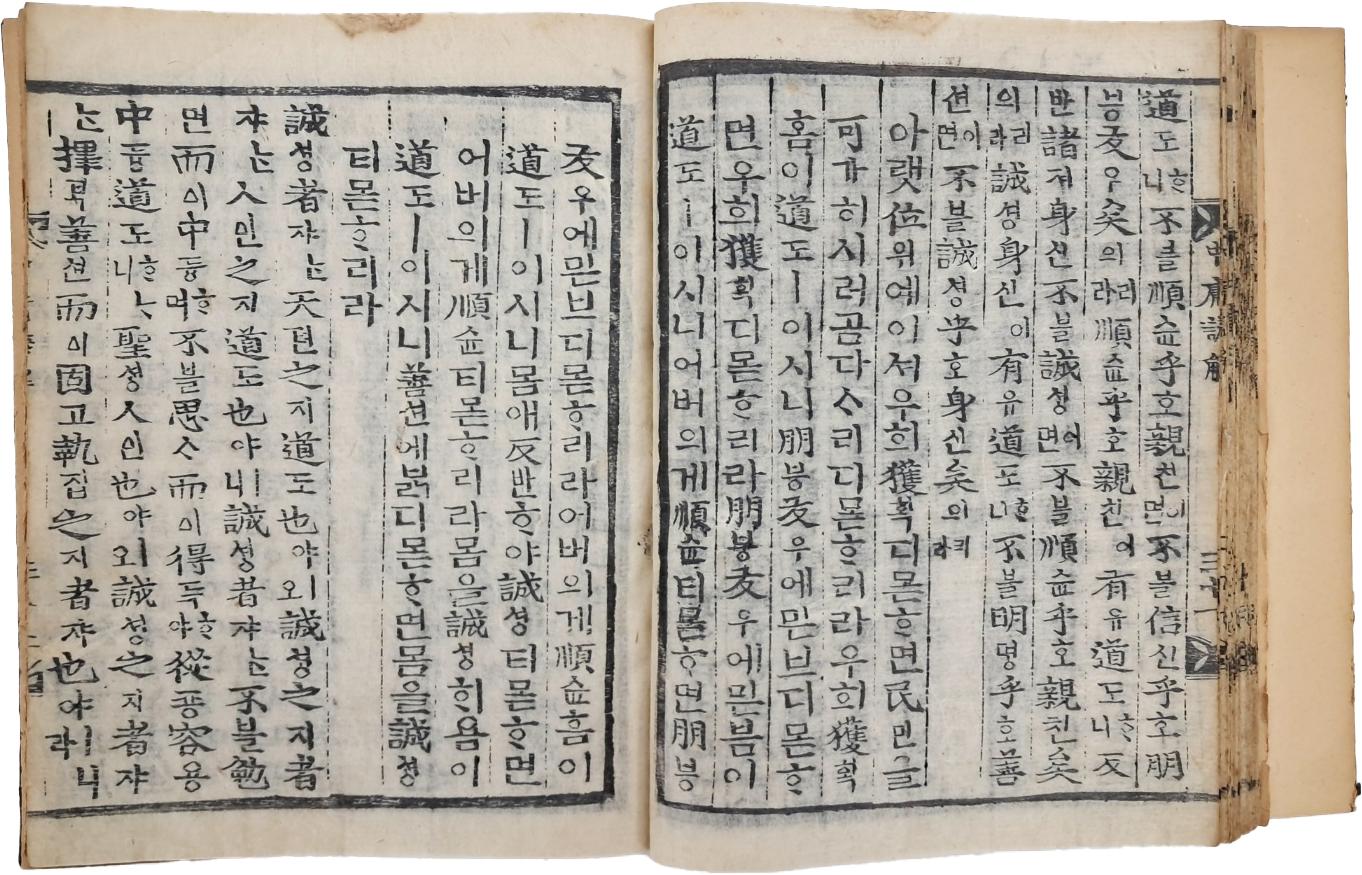 中庸諺解
道도ᄒᆞ니不블順슌乎호親친이면不블信신乎호朋
븡友우矣의리라順슌乎호親친이有유道도ᄒᆞ니反
반諸져身신不블誠셩이면不블順슌乎호親친矣
의리라誠셩身신이有유道도ᄒᆞ니不블明명乎호善
션이면不블誠셩乎호身신矣의리라
아랫位위예이셔우희獲획디몯ᄒᆞ면民민을
可가히시러곰다ᄉᆞ리디몯ᄒᆞ리라우희獲획
홈이道도ㅣ이시니朋븡友우에믿브디몯ᄒᆞ
면우희獲획디몯ᄒᆞ리라朋븡友우에믿븜이
道도ㅣ이시니어버의게順슌티몯ᄒᆞ면朋븡
友우에믿브디몯ᄒᆞ리라어버의게順슌홈이
道도ㅣ이시니몸애反반ᄒᆞ야誠셩티몯ᄒᆞ면
어버의게順슌티몯ᄒᆞ리라몸을誠셩히욤이
道도ㅣ이시니善션에ᄇᆞᆰ디몯ᄒᆞ면몸을誠셩
티몯ᄒᆞ리라
誠셩者쟈ᄂᆞᆫ天텬之지道도也야ㅣ오誠셩之지者
쟈ᄂᆞᆫ人인之지道도也야ㅣ니誠셩者쟈ᄂᆞᆫ不블勉
면而이中듕ᄒᆞ며不블思ᄉᆞ而이得득ᄒᆞ야從죵容용
中듕道도ᄒᆞᄂᆞ니聖셩人인也야ㅣ오誠셩之지者쟈
ᄂᆞᆫ擇ᄐᆡᆨ善션而이固고執집之지者쟈也야ㅣ니라